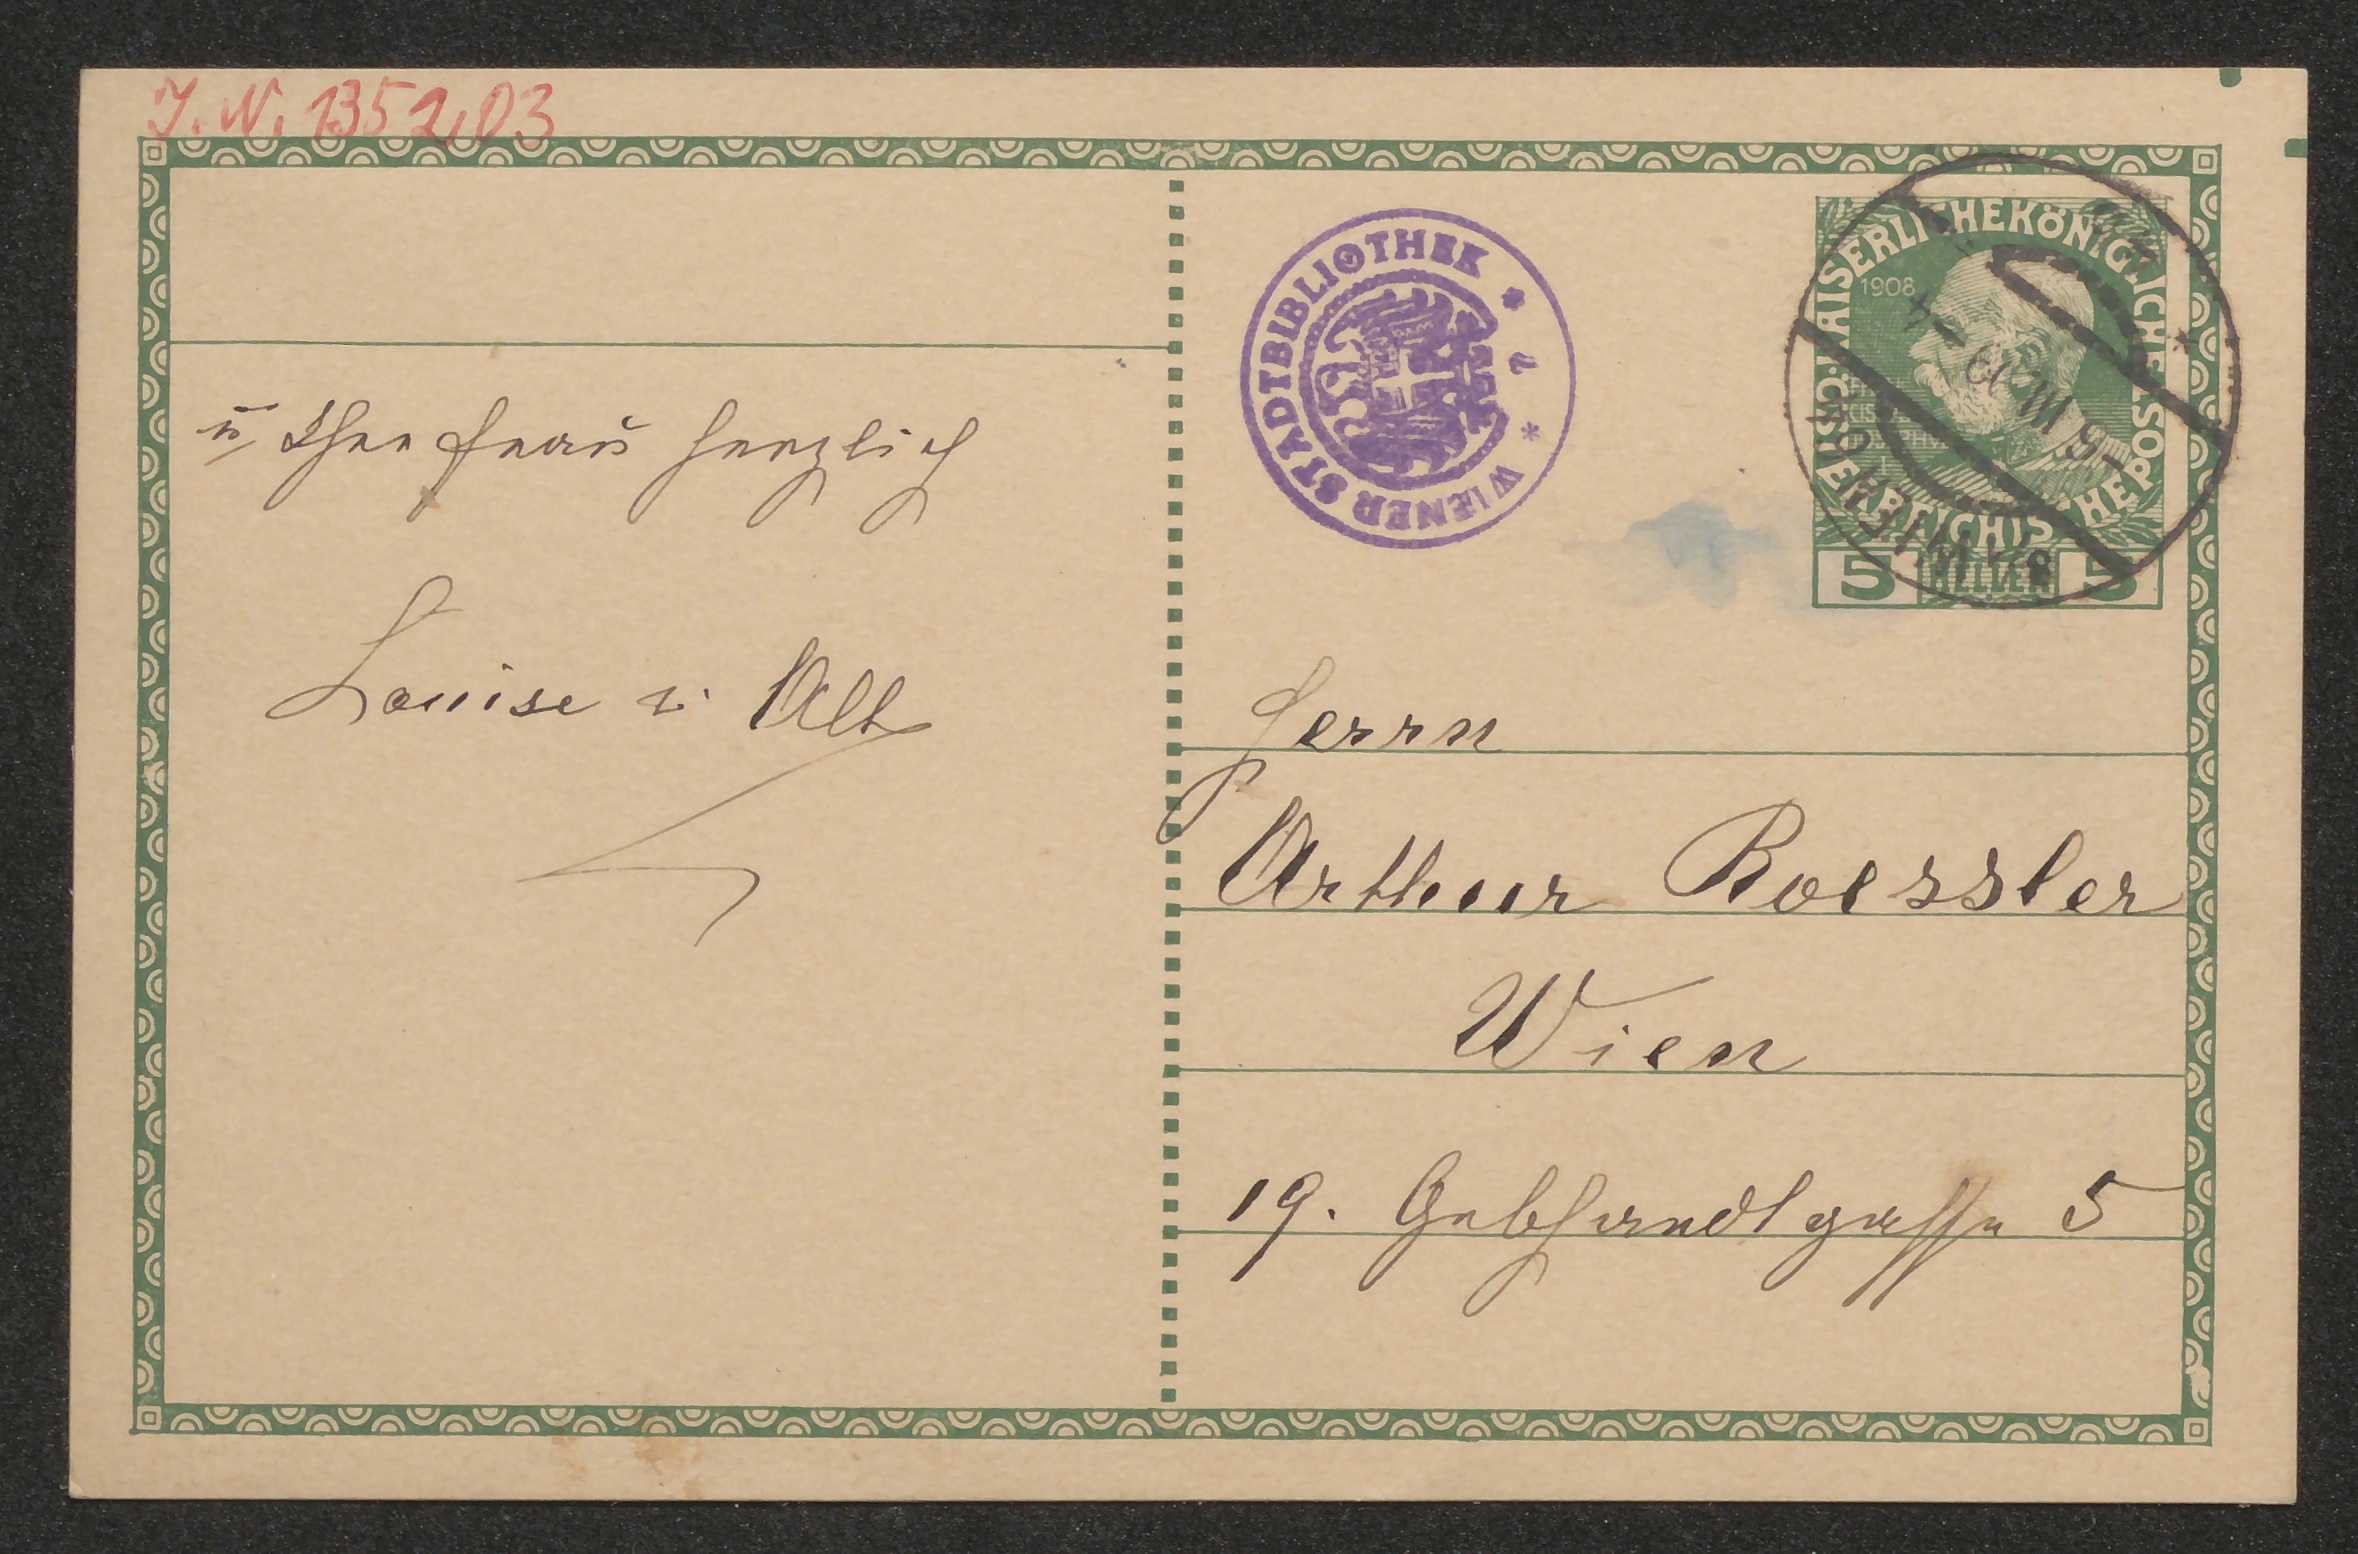 J. N. 135203
u Ihre Frau herzlich
Louise v. Alt
WIENER STADTBIBLIOTHEK
KAISERLICHEKÖNIGLICHE
ÖSTERREICHISCHE POST
1908
5 HELLER 5
WIEN
Herrn
Arthur Roessler
Wien
19. Gebhardtgasse 5